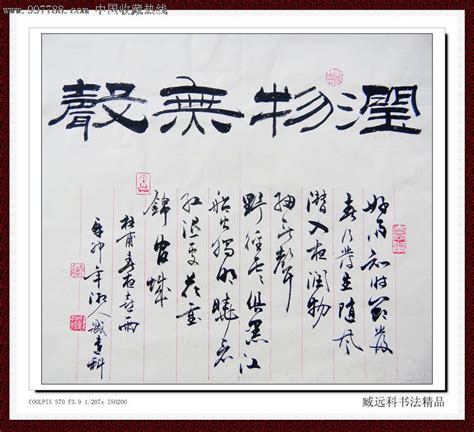 www.997788.com 中国收藏热线
潤物無聲
好雨知時節當
春乃發生隨風
潛入夜潤物
細無聲
野徑雲俱黑江
船火獨明曉看
紅濕處花重
錦官城
杜甫春夜喜雨
辛卯年湖人臧遠科
COOLPIX S70 F3.9 1/207s ISO200
臧远科书法精品